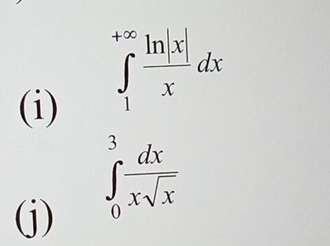 (i) \int_{1}^{+\infty} \frac{\ln|x|}{x} dx
(j) \int_{0}^{3} \frac{dx}{x\sqrt{x}}